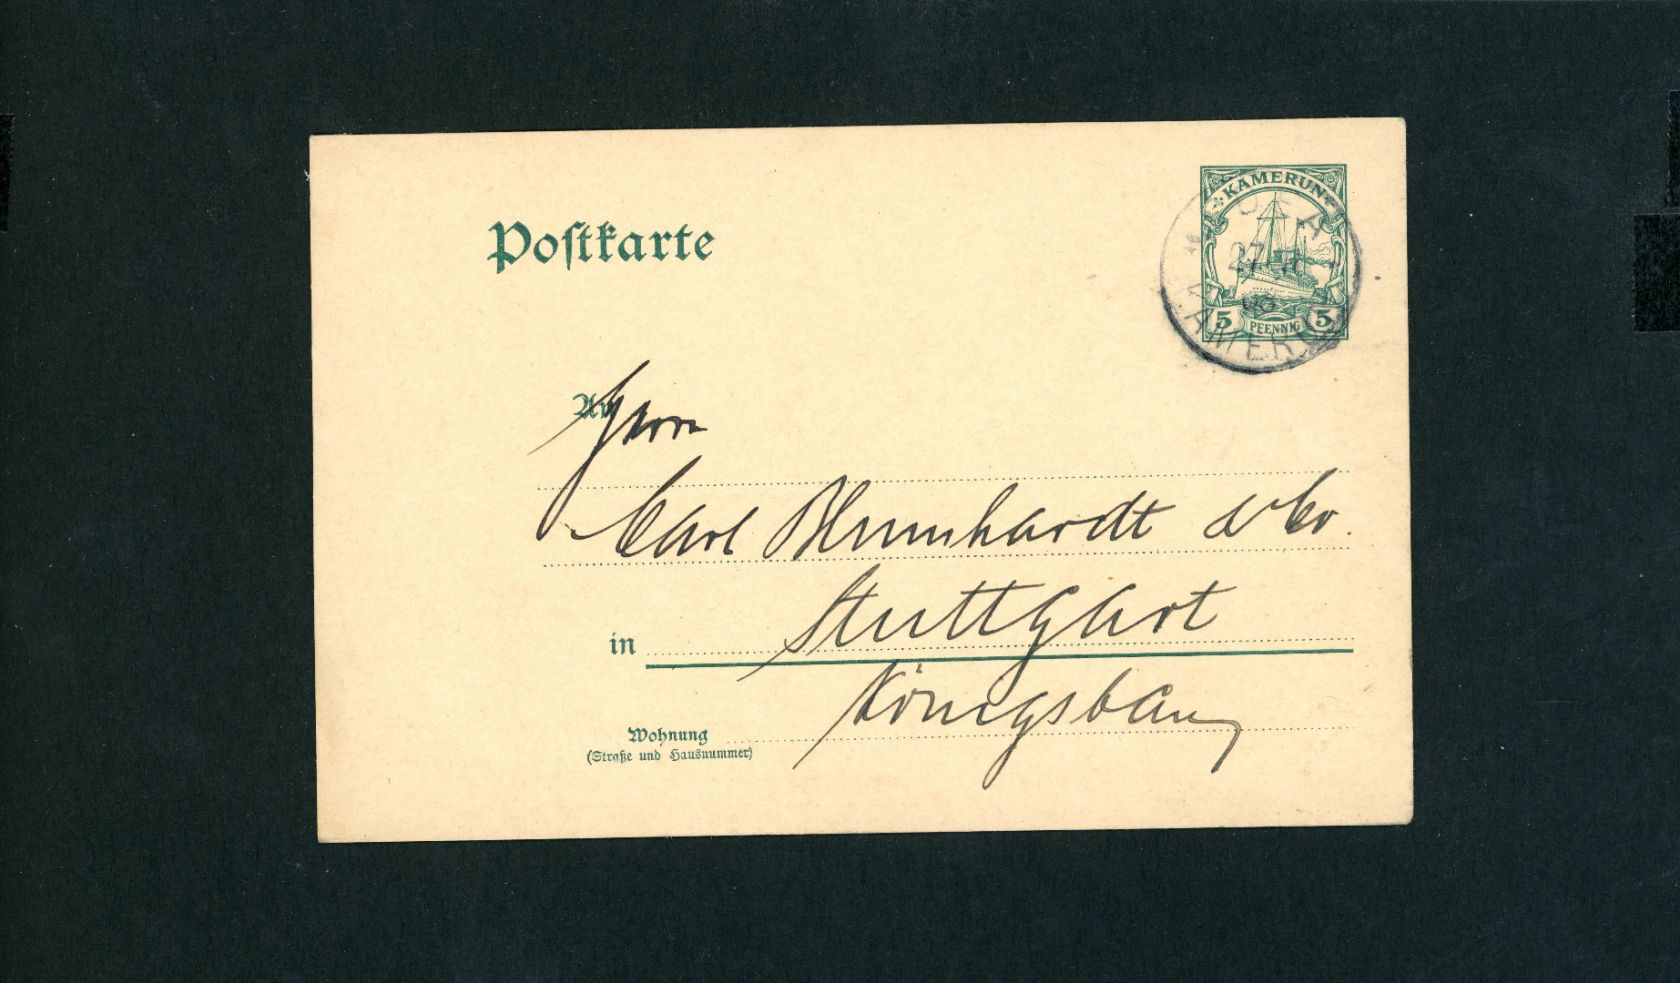 Postkarte
KAMERUN
5 PFENNIG 5
27
KAMERUN
An
Herrn
Carl Blumhardt & Co.
in Stuttgart
Königsbau
Wohnung
(Straße und Hausnummer)